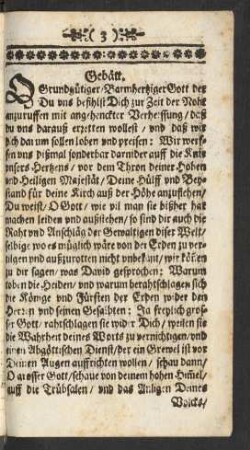 ( 3 )
Gebätt.
O Grundgütiger/Barmhertziger Gott der
Du uns befihlst Dich zur Zeit der Noht
anzuruffen mit angehenckter Verheissung/ daß
du uns darauß erretten wollest / und daß wir
dich darum sollen loben und preisen: Wir werf-
fen uns dißmal sonderbar darnider auff die Knie
unsers Hertzens / vor dem Thron deiner Hohen
und Heiligen Majestät/ Deine Hülff und Bey-
stand für deine Kirch auß der Höhe anzuflehen/
Du weist/ O Gott / wie vil man sie bißher hat
machen leiden und außstehen/ so sind dir auch die
Raht und Anschläg der Gewaltigen diser Welt/
selbige wo es müglich wäre von der Erden zu ver-
tilgen und außzurotten nicht unbekant/ wir können
zu dir sagen/ was David gesprochen: Warum
toben die Heiden/ und warum berahtschlagen sich
die Könige und Fürsten der Erden wider den
Herren und seinen Gesalbten: Ja freylich gros-
ser Gott/ rahtschlagen sie wider Dich/ weilen sie
die Wahrheit deines Worts zu vernichtigen/ und
einen Abgöttischen Dienst/ der ein Grewel ist vor
Deinen Augen auffrichten wollen/ schau dann/
O grosser Gott/ schaue von deinem hohen Himel/
auff die Trübsalen/ und das Anligen Deines
Volcks/